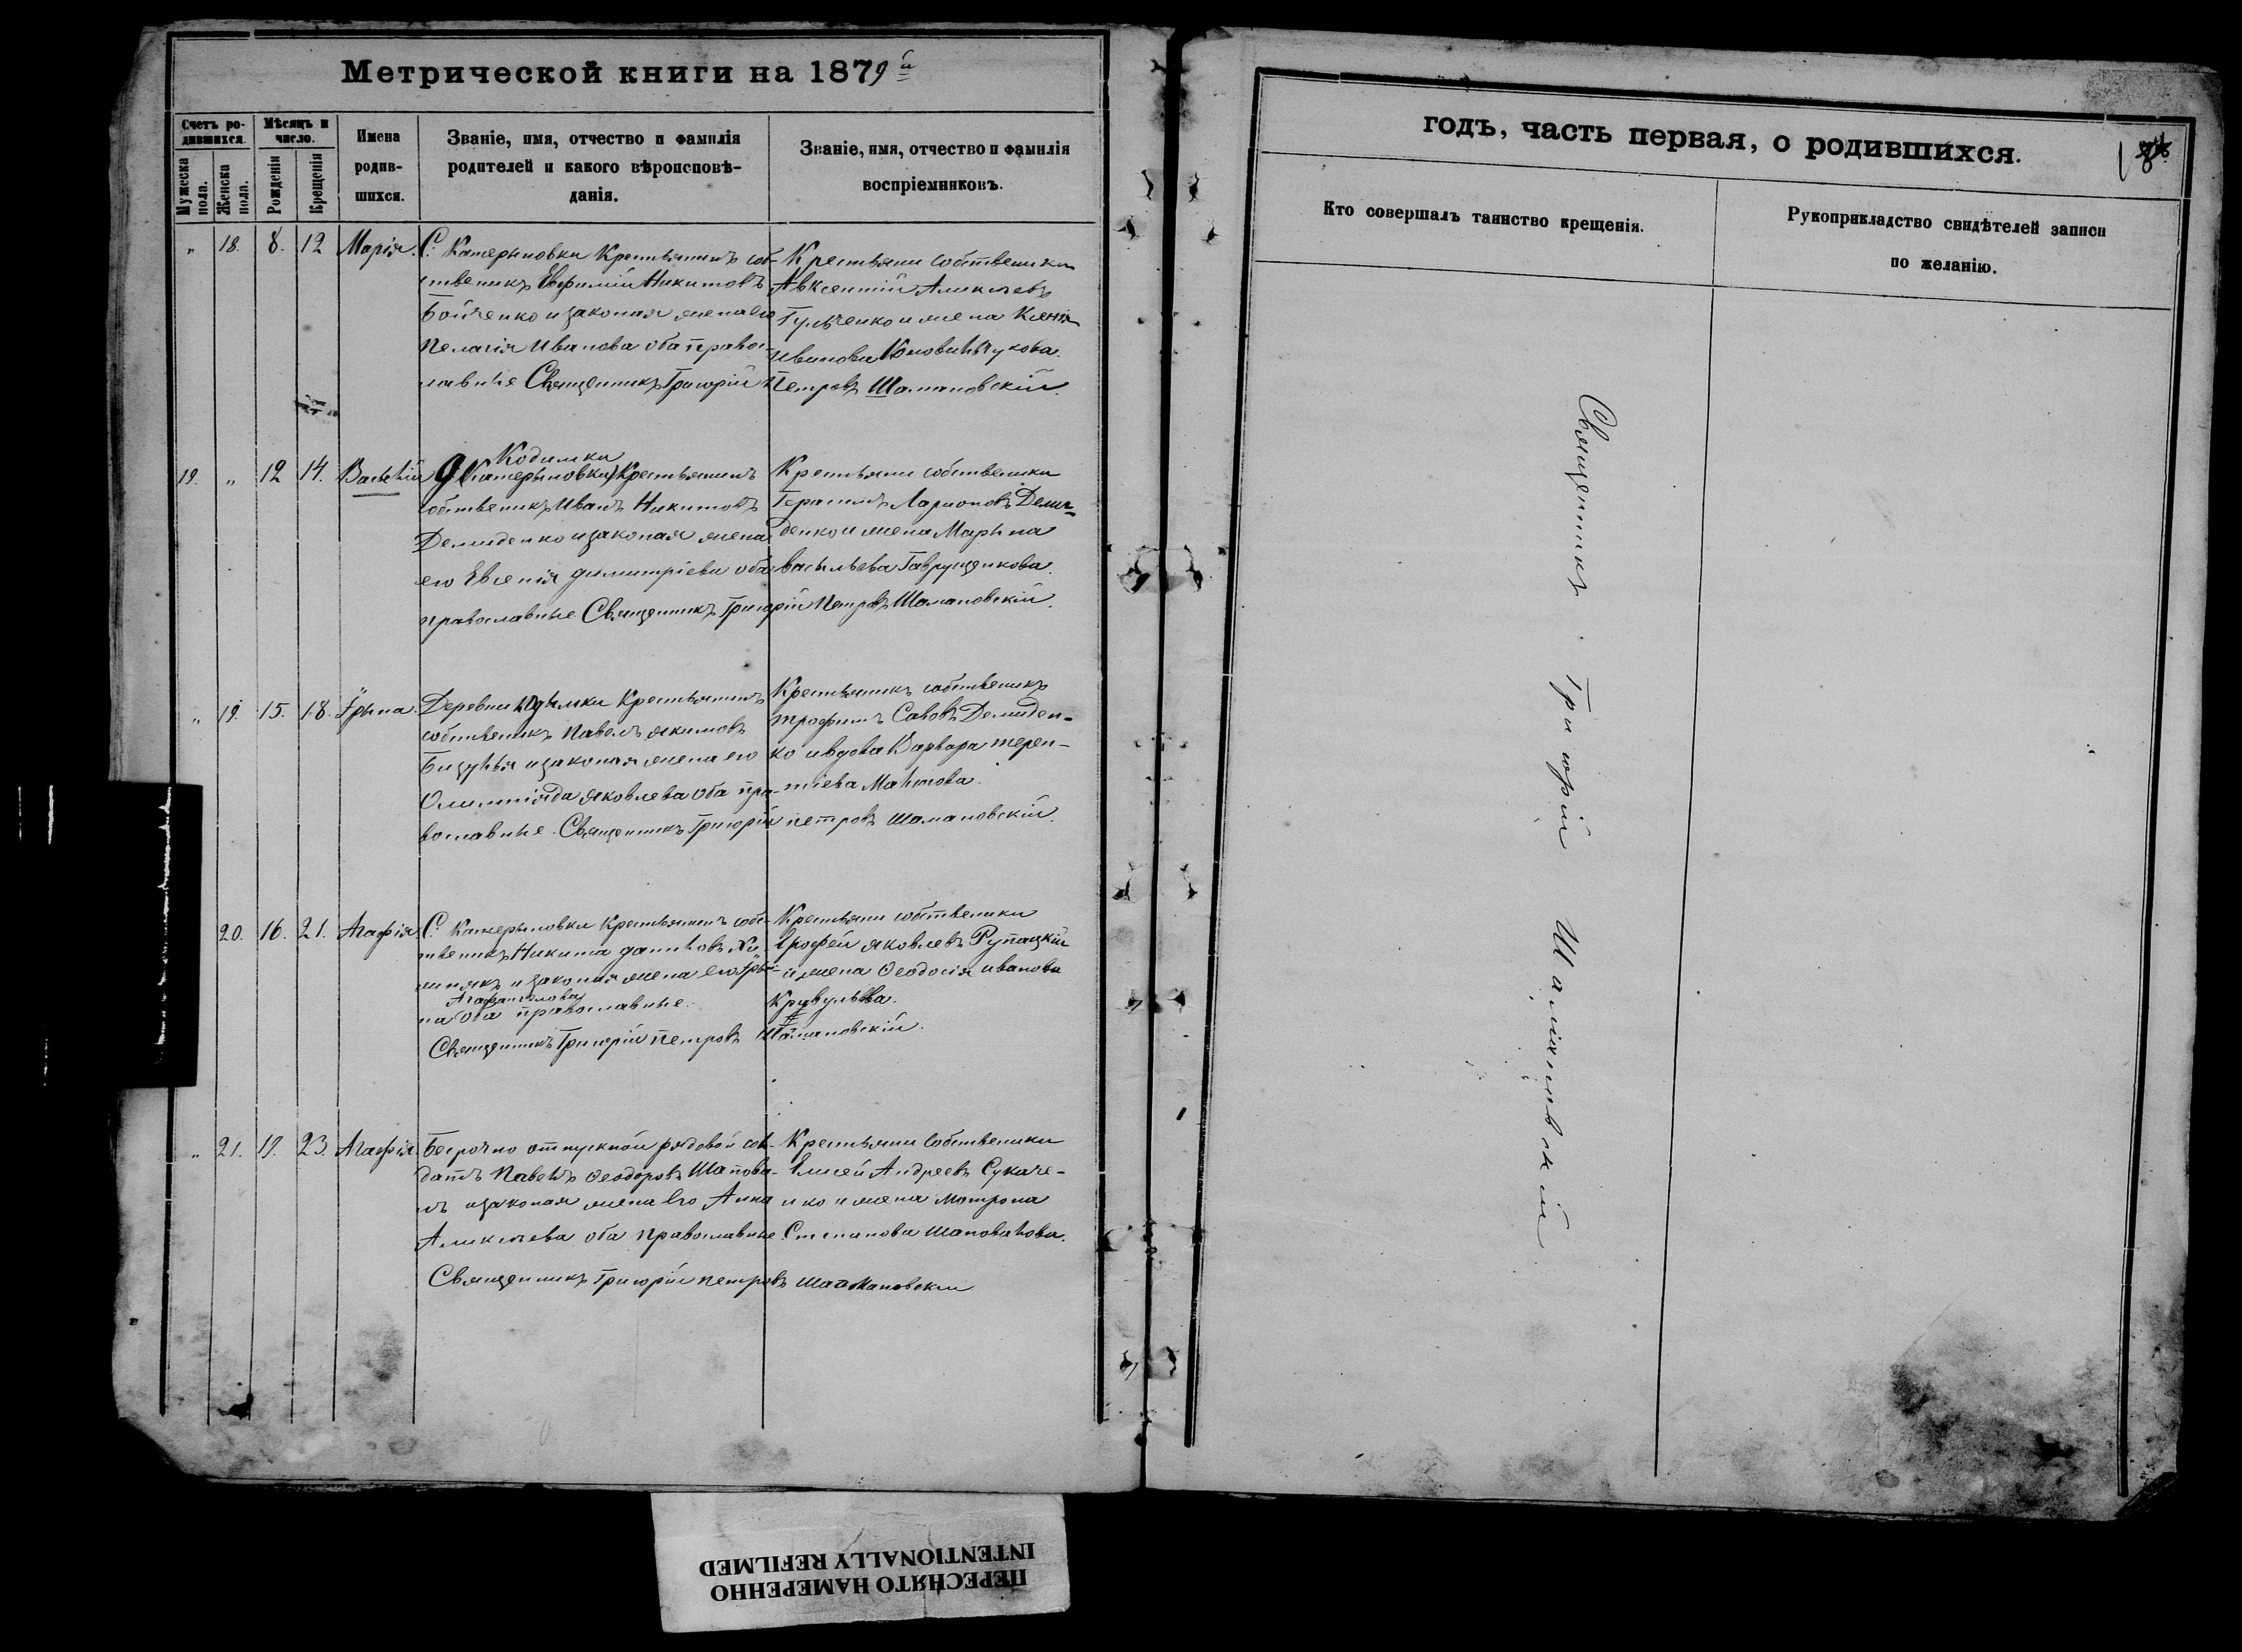 Метрической книги на 1879й
Счетъ родившихся.
Мѣсяцъ и число.
Имена родившихся.
Званіе, имя, отчество и фамилія родителей и какого вѣроисповѣданія.
Званіе, имя, отчество и фамилія воспріемниковъ.
Мужеска пола.
Женска пола.
Рожденія
Крещенія
" 18. 8. 12 Марія.
С. Катериновки Крестьянинъ соб-
ственикъ Евфимій Никитовъ
Бойченко и законая жена его
Пелагія Иванова оба право-
славные Священникъ Григорій
Крестьяни собственики
Авксентій Алексеевъ
Гульченко и жена Ксенія
Иванова
Петровъ Шамановскій.
19. " 12 14. Василій
Кодимки
Катериновки Крестьянинъ
собственикъ Иванъ Никитовъ
Демиденко и законая жена
его Евгенія Димитріева оба
православные Священникъ Григорій Петровъ Шамановскій.
Крестьяни собственики
Герасимъ Ларионовъ Деми-
денко и жена Марина
Васильева Гаврущенкова.
" 19. 15. 18. Ірина.
Деревни Кодымки Крестьянинъ
собственикъ Павелъ Якимовъ
и законая жена его
Олимпіяда Яковлева оба пра-
вославные. Священникъ Григорій Петровъ Шамановскій.
Крестьянинъ собственикъ
Трофимъ Савовъ Демиден-
ко и вдова Варвара Терен-
тіева
20. 16. 21. Агафія.
С. Катериновки Крестьянинъ соб-
ственикъ Никита Даниловъ
и законая жена его Іри-
Агафангелова
на оба православные.
Священникъ Григорій Петровъ Шамановскій.
Крестьяни собственики
Ерофей Яковлевъ Рупацкій
и жена Феодосія Иванова
" 21. 19. 23. Агафія.
Безрочно отпускной рядовой сол-
датъ Павелъ Феодоровъ Шапова-
лъ и законая жена его Анна
Алексеева оба православные.
Священникъ Григорій Петровъ Шамановскій
Крестьяни собственики
Елисей Андреевъ Сукаче-
нко и жена Матрона
Степанова Шаповалова.
годъ, часть первая, о родившихся.
Кто совершалъ таинство крещенія.
Рукоприкладство свидѣтелей записи
по желанію.
Священникъ Григорій Шамановскій
ПЕРЕСНЯТО НАМЕРЕННО
INTENTIONALLY REFILMED